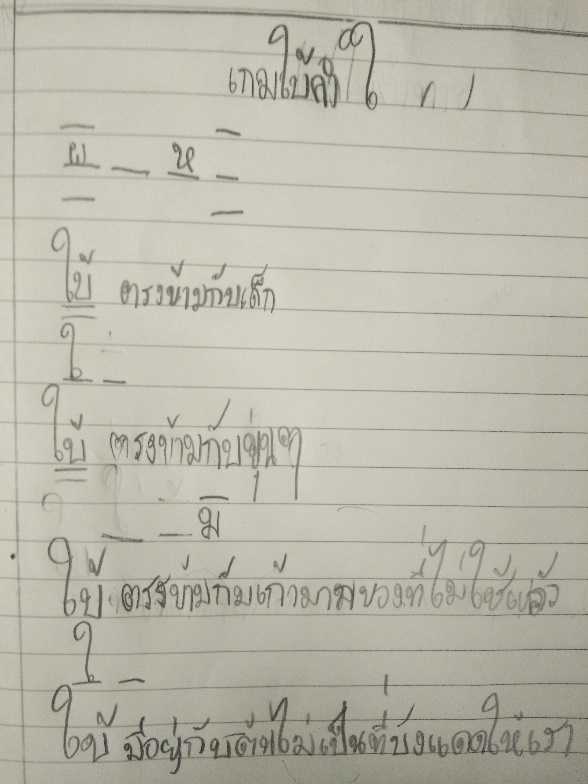 เกมใบ้คำ ใ
ผ _ ห _
ใบ้ ตรงข้ามกับเด็ก
ใ _
ใบ้ ตรงข้ามกับขุ่นๆ
_ _ ม
ใบ้ ตรงข้ามกับเก้า ของที่ไม่ใช้แล้ว
ใ _
ใบ้ มีอยู่กับต้นไม้เป็นที่บังแดดให้เรา